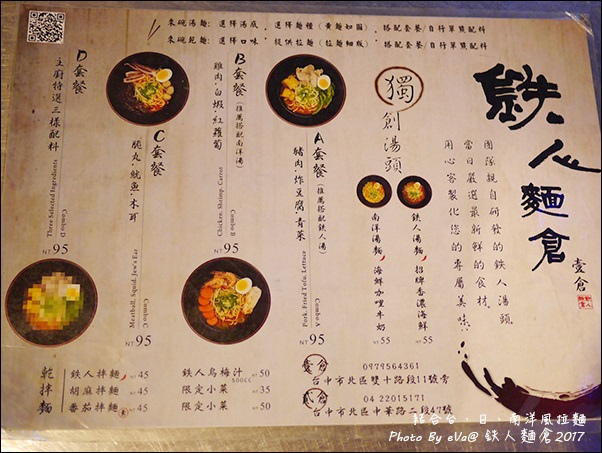 來碗湯麵：選擇湯底，選擇麵種(黃麵如圖)，搭配套餐/自行單點配料
來碗乾麵：選擇口味，提供拉麵(拉麵細版)，搭配套餐/自行單點配料
鉄人麵倉
壹倉
團隊親自研發的鉄人湯頭
當日嚴選最新鮮的食材
用心客製化您的專屬美味
獨創湯頭
鉄人湯麵 招牌香濃海鮮 NT 55
南洋湯麵 海鮮咖哩牛奶 NT 55
A套餐(推薦搭配鉄人湯)
豬肉·炸豆腐·青菜
Combo A
Pork, Fried Tofu, Lettuce
NT 95
B套餐(推薦搭配南洋湯)
雞肉·白蝦·紅蘿蔔
Combo B
Chicken, Shrimp, Carrot
NT 95
C套餐
脆丸·魷魚·木耳
Combo C
Meatball, Squid, Jew's Ear
NT 95
D套餐
主廚特選三樣配料
Combo D
Three Selected Ingredients
NT 95
乾拌麵
鉄人拌麵 NT 45
胡麻拌麵 NT 45
番茄拌麵 NT 45
鉄人烏梅汁 500CC NT 50
限定小菜 NT 35
限定小菜 NT 50
壹倉 0979564361
台中市北區雙十路段11號旁
貳倉 04 22015171
台中市北區中華路二段47號
融合台、日、南洋風拉麵
Photo By eVa@ 鉄人麵倉2017